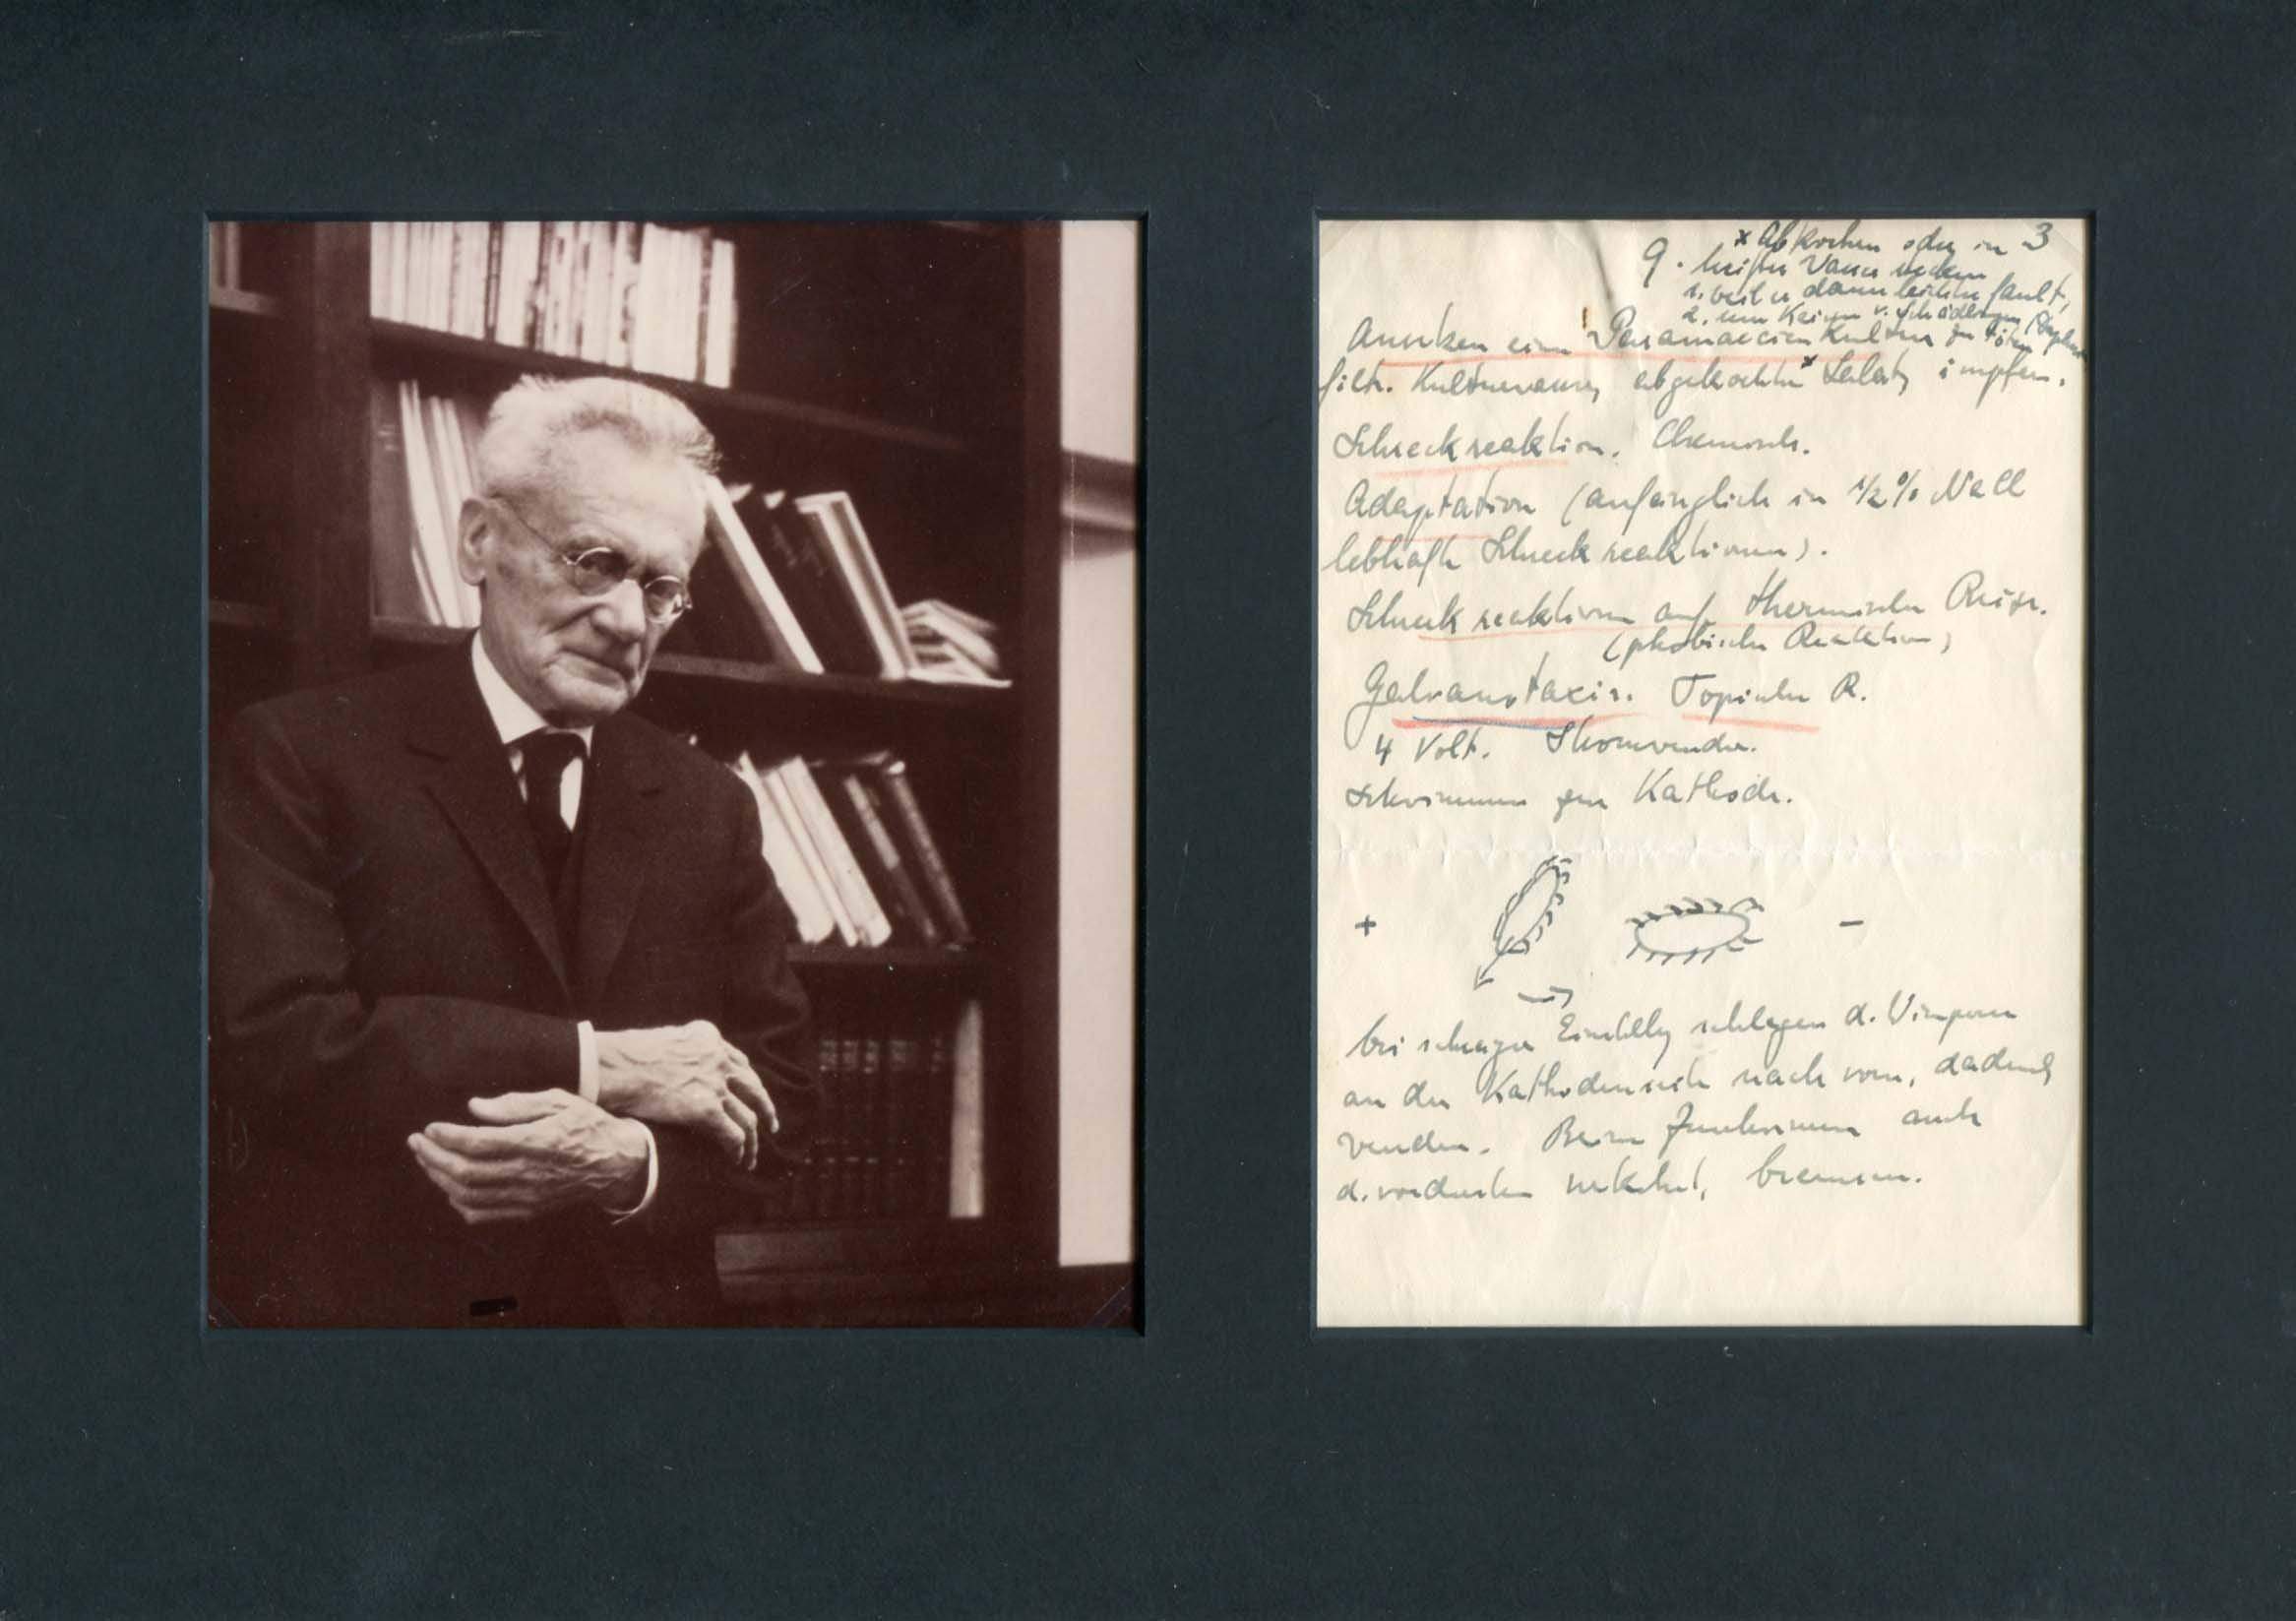 3
9. × Abkochen oder in
heißes Wasser stecken
1. weil er dann leichter fault,
2. um Keime v. Schädlingen zu töten
Ansetzen einer Paramaecien Kultur
filtr. Kulturwasser, abgekochten × Salat, impfen.
Schreckreaktion. Chemisch.
Adaptation (anfänglich in 1/2 % NaCl
lebhafte Schreckreaktionen).
Schreckreaktionen auf thermische Reize.
(phobische Reaktion)
Galvanotaxis. Topische R.
4 Volt. Stromwender.
Schwimmen zur Kathode.
+ −
bei schräger Einstellg schlagen d. Wimpern
an der Kathodenseite nach vorn, dadurch
wenden. Beim auch
d. vordersten verkehrt, bremsen.